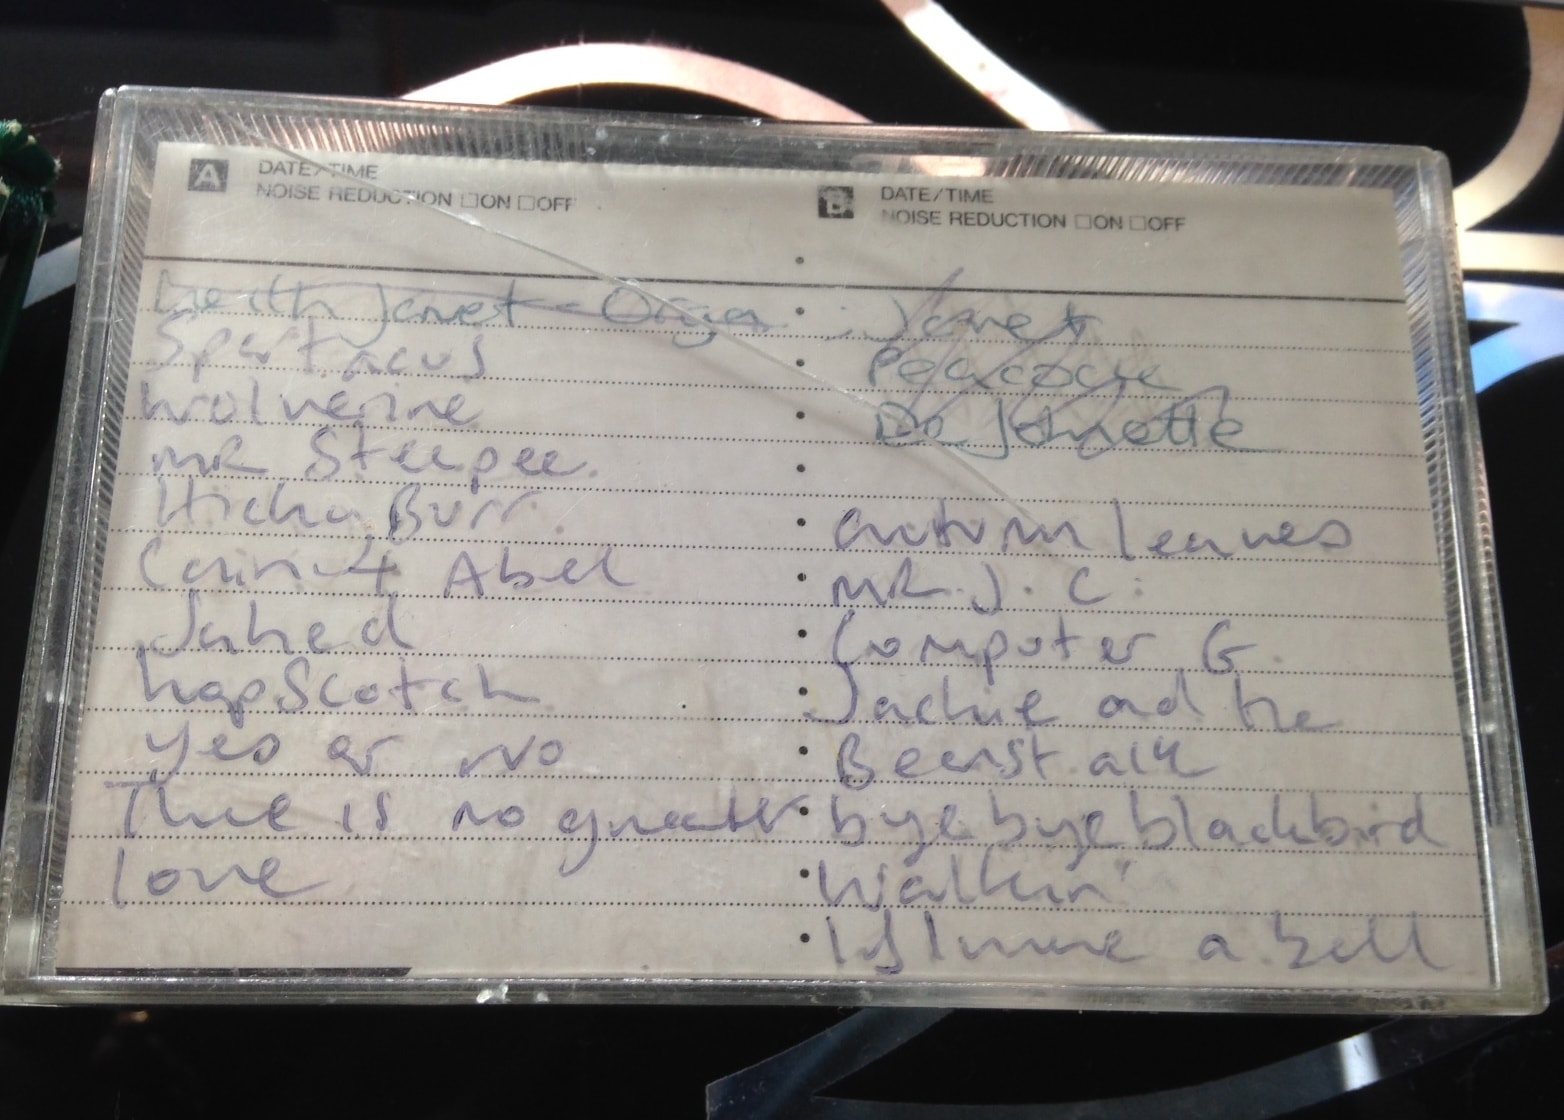 A DATE/TIME
NOISE REDUCTION □ON □OFF
Keith Jarret - Organ
Spartacus
Wolverine
MR Steepee.
Hicha Burr.
Cain + Abel
Jahed
hopScotch
Yes or No
There is no greater
love
B DATE/TIME
NOISE REDUCTION □ON □OFF
Jarret
Peacock
De Johnette
autumn leaves
MR J. C.
Computer G.
Jackie and the
Beanst alk
bye bye blackbird
Walkin'
If I were a bell